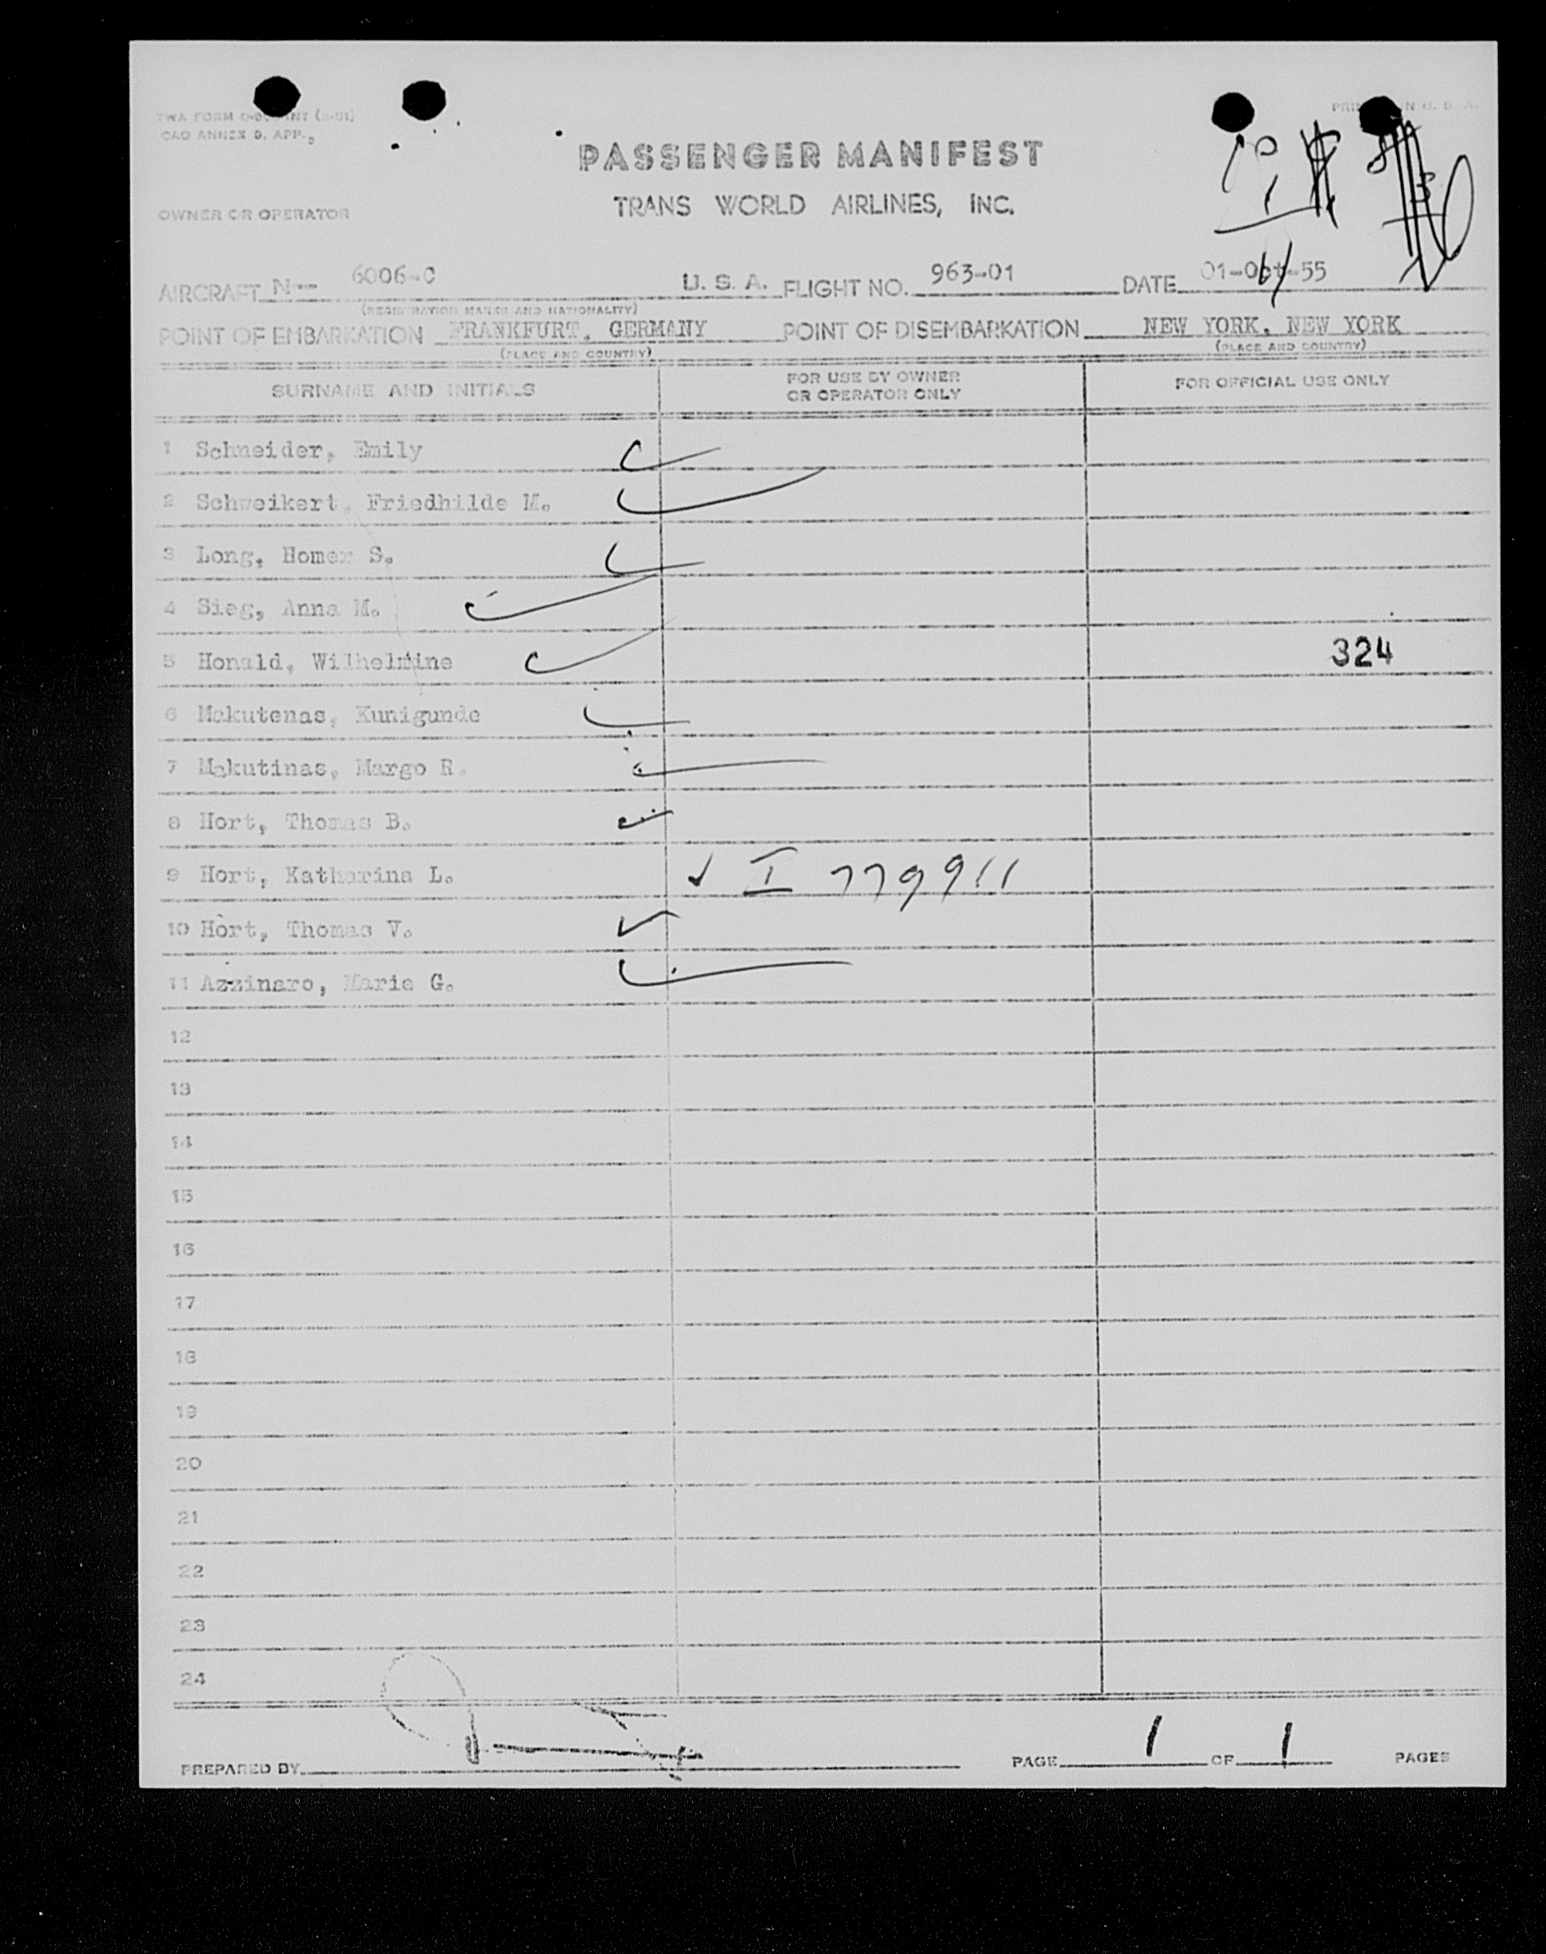 TWA FORM
CAO ANNEX 9, APP.
PASSENGER MANIFEST
TRANS WORLD AIRLINES, INC.
OWNER OR OPERATOR
AIRCRAFT N-- 6006-C U. S. A. FLIGHT NO. 963-01 DATE 01-Oct-55
(REGISTRATION MARKS AND NATIONALITY)
POINT OF EMBARKATION FRANKFURT, GERMANY POINT OF DISEMBARKATION NEW YORK, NEW YORK
(PLACE AND COUNTRY) (PLACE AND COUNTRY)
SURNAME AND INITIALS FOR USE BY OWNER OR OPERATOR ONLY FOR OFFICIAL USE ONLY
1 Schneider, Emily
2 Schweikert, Friedhilde M.
3 Long, Homer S.
4 Sieg, Anna M.
5 Honald, Wilhelmine 324
6 Makutenas, Kunigunde
7 Makutinas, Margo R.
8 Hort, Thomas B.
9 Hort, Katharina L. ✓ I 779911
10 Hort, Thomas V.
11 Azzinaro, Maria G.
12
13
14
15
16
17
18
19
20
21
22
23
24
PREPARED BY PAGE 1 OF 1 PAGES